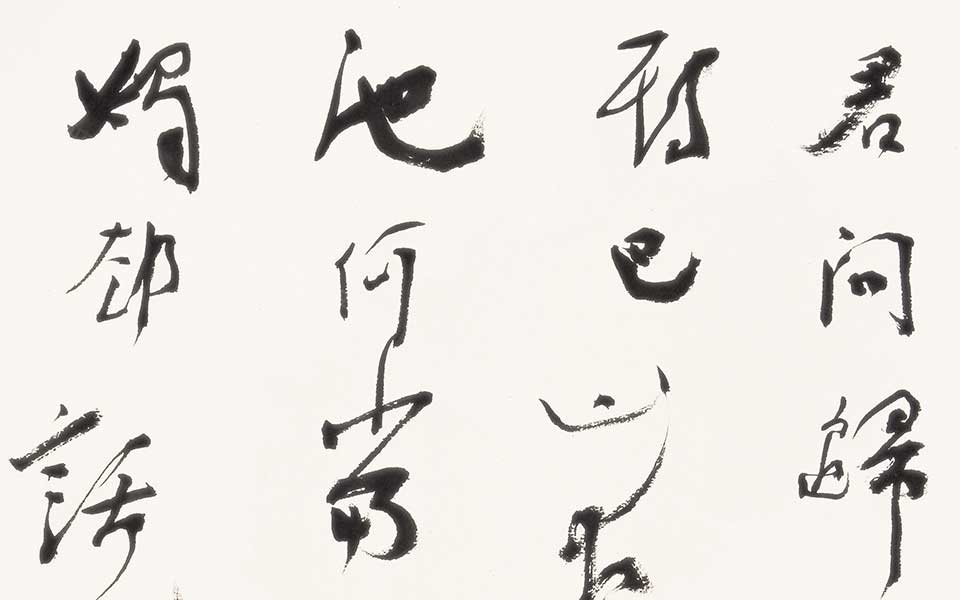 君問歸
期巴山夜
池何當
燭卻話